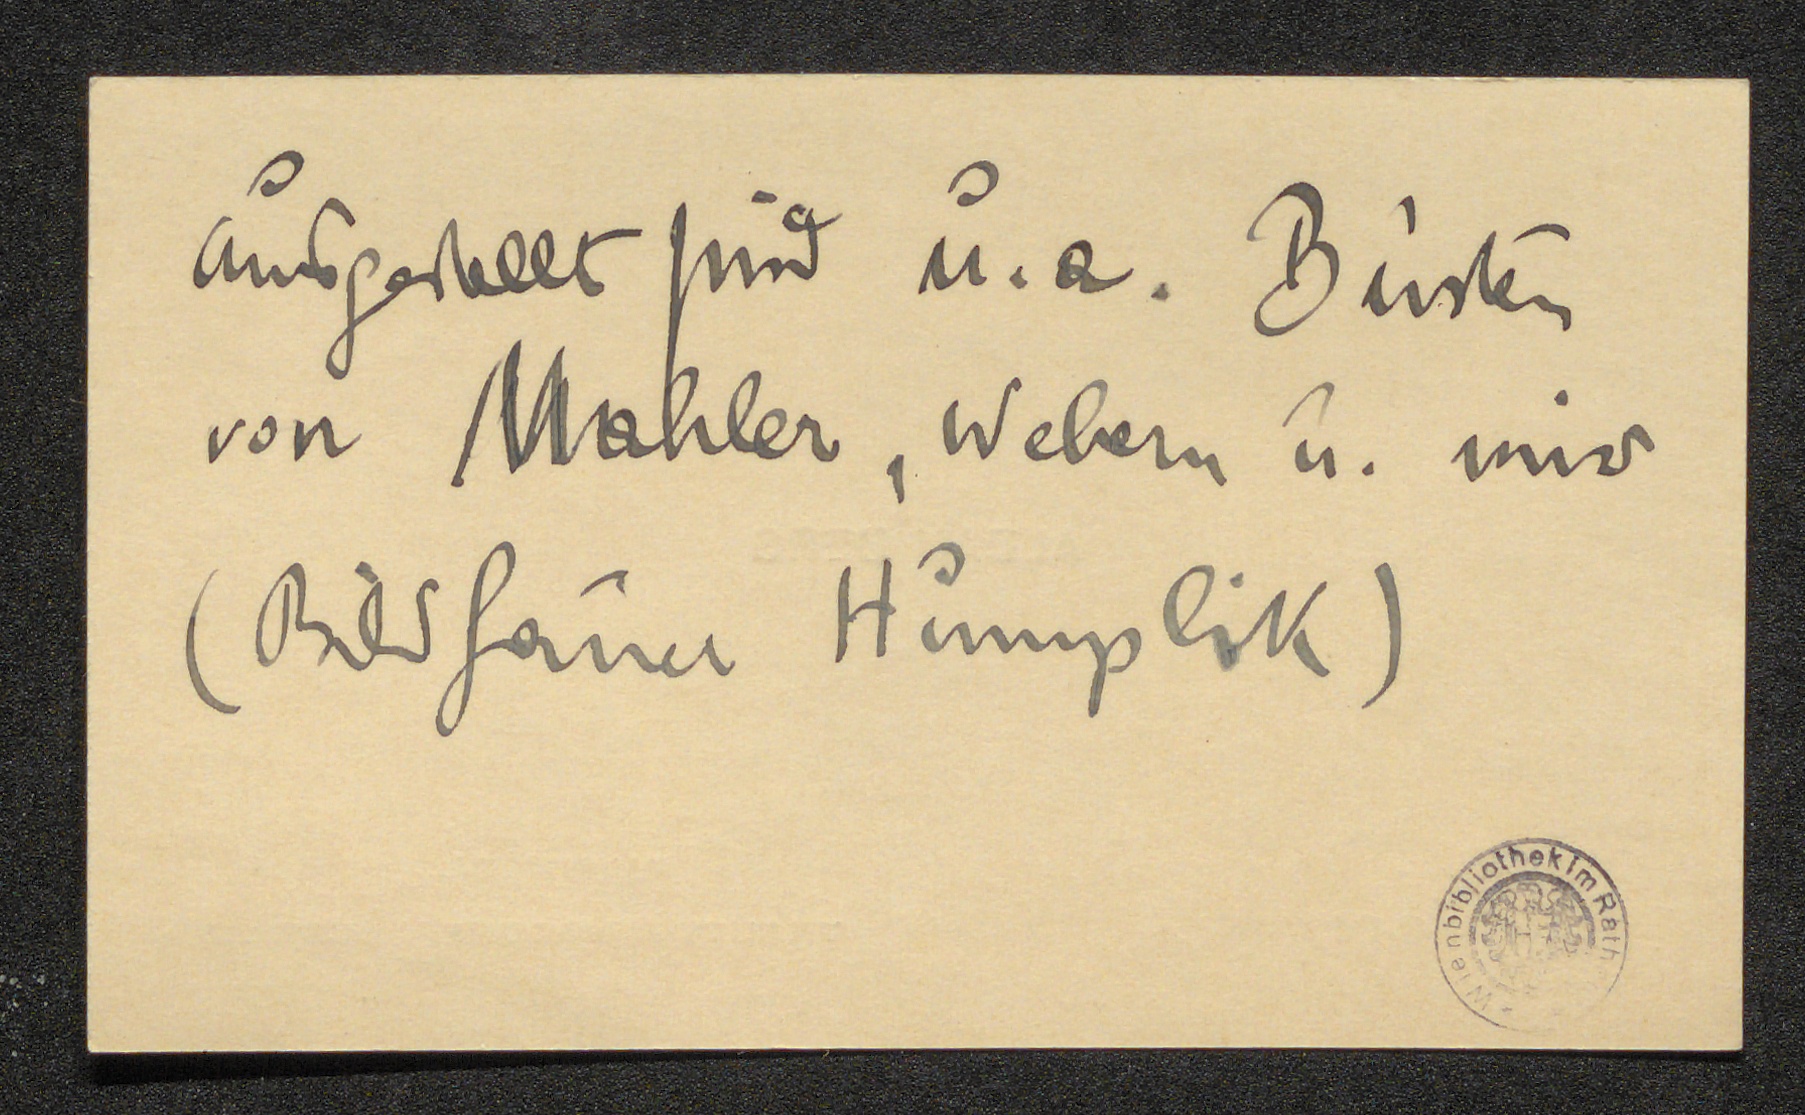 ausgestellt sind u. a. Büsten
von Mahler, Webern u. mir
(Bildhauer Humplik)
Wienbibliothek im Rath